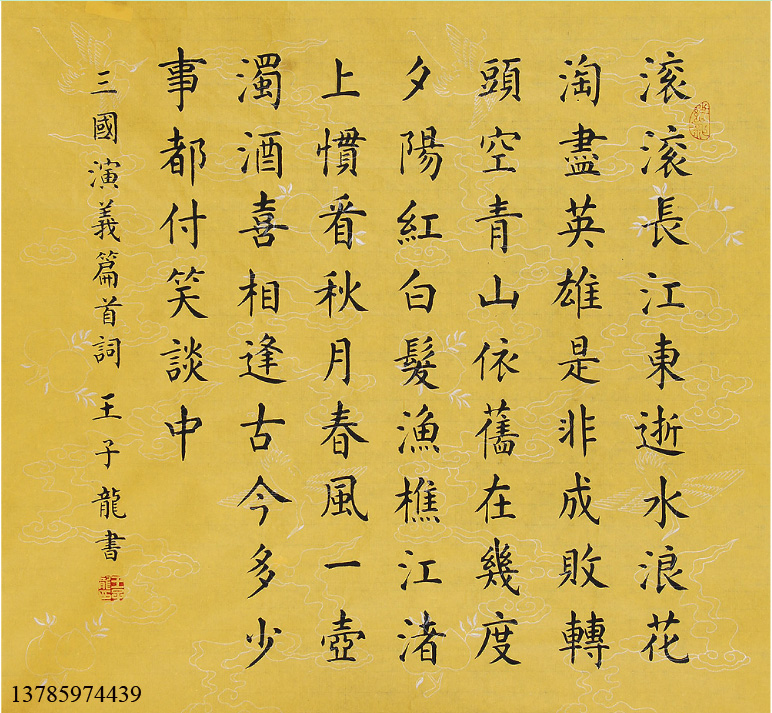 滚滚長江東逝水浪花
淘盡英雄是非成敗轉
頭空青山依舊在幾度
夕陽紅白髮漁樵江渚
上慣看秋月春風一壺
濁酒喜相逢古今多少
事都付笑談中
三國演義篇首詞 王子龍書
13785974439